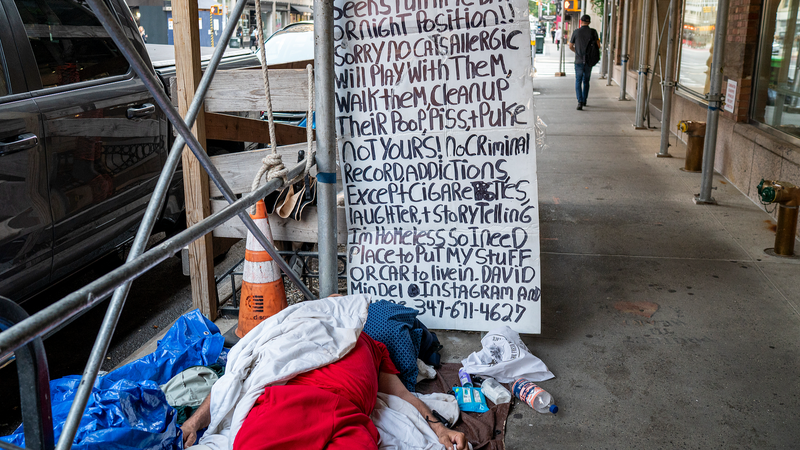 OR NIGHT POSITION!!
SORRY NO CATS, ALLERGIC
WILL PLAY WITH THEM,
WALK THEM, CLEAN UP
THEIR POOP, PISS, + PUKE
NOT YOURS! NO CRIMINAL
RECORD, ADDICTIONS,
EXCEPT CIGARETTES,
LAUGHTER, + STORYTELLING
Im HOMELESS SO I NEED
PLACE to PUT MY STUFF
OR CAR to live in. DAVID
MinDel @INSTAGRAM AND
347-671-4627